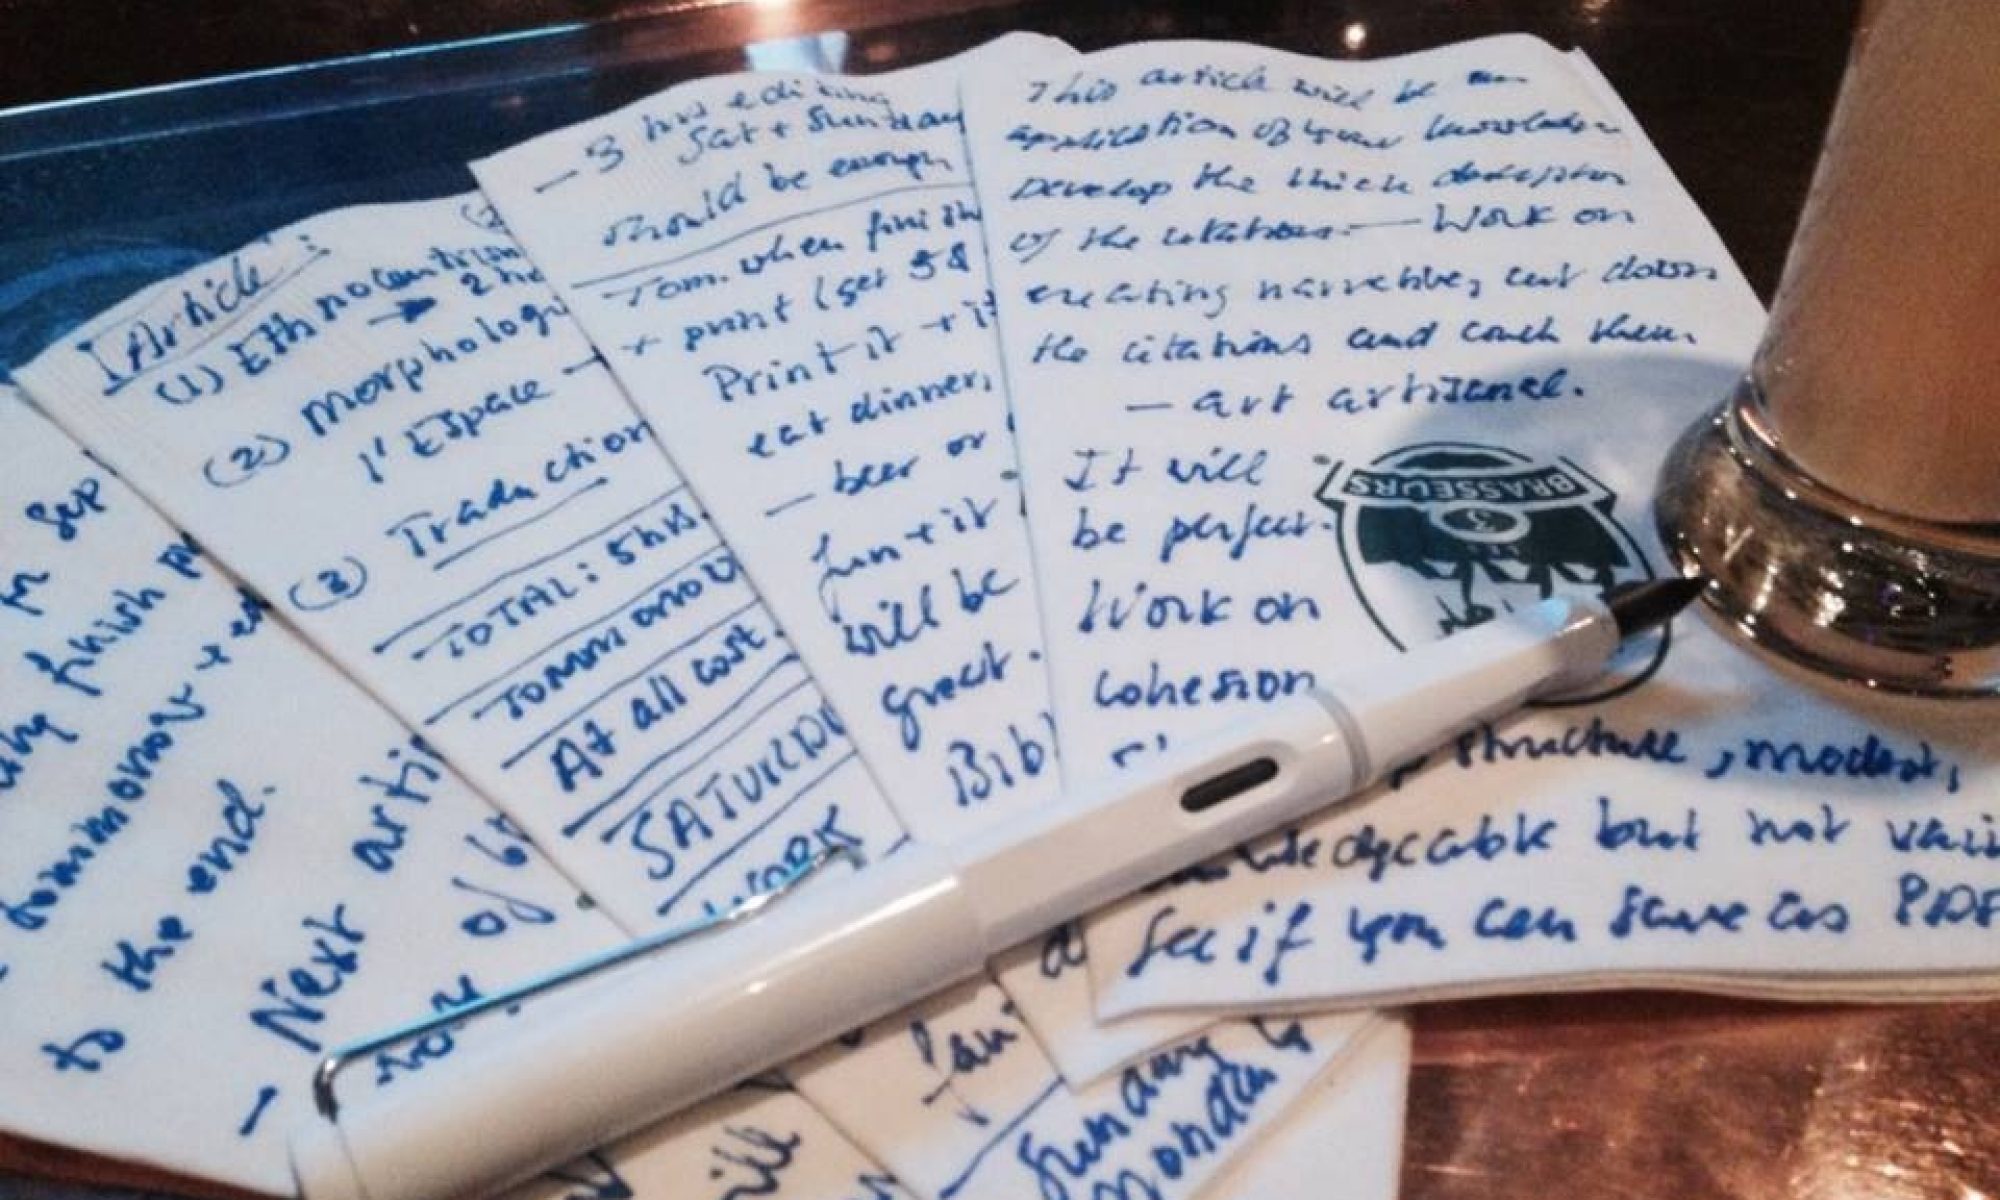 in Sep
finish
tommorow +
to the end.
- Next arti
now of
Article:
(1) Ethnocentrism
→ 2 hrs
(2) Morphologi
l'Espace
(3) Traduction
TOTAL: 5 hrs.
TOMMOROW
At all cost.
SATURDA
WORK
- 3 hrs editing
Sat + Sunday
should be enough
Tom. when finish
+ print (get 5$
Print it + it
eat dinner,
- beer or
fun + it
will be
great.
Bibl
This article will be an
application of your knowledge
Develop the thick description
of the citations. - Work on
creating narrative, cut down
the citations and couch them
- art artisanal.
It will
be perfect.
Work on
cohesion
structure, modest,
but not vain
See if you can save as PDF
BRASSEURS
3
fun
Sunday
Monday